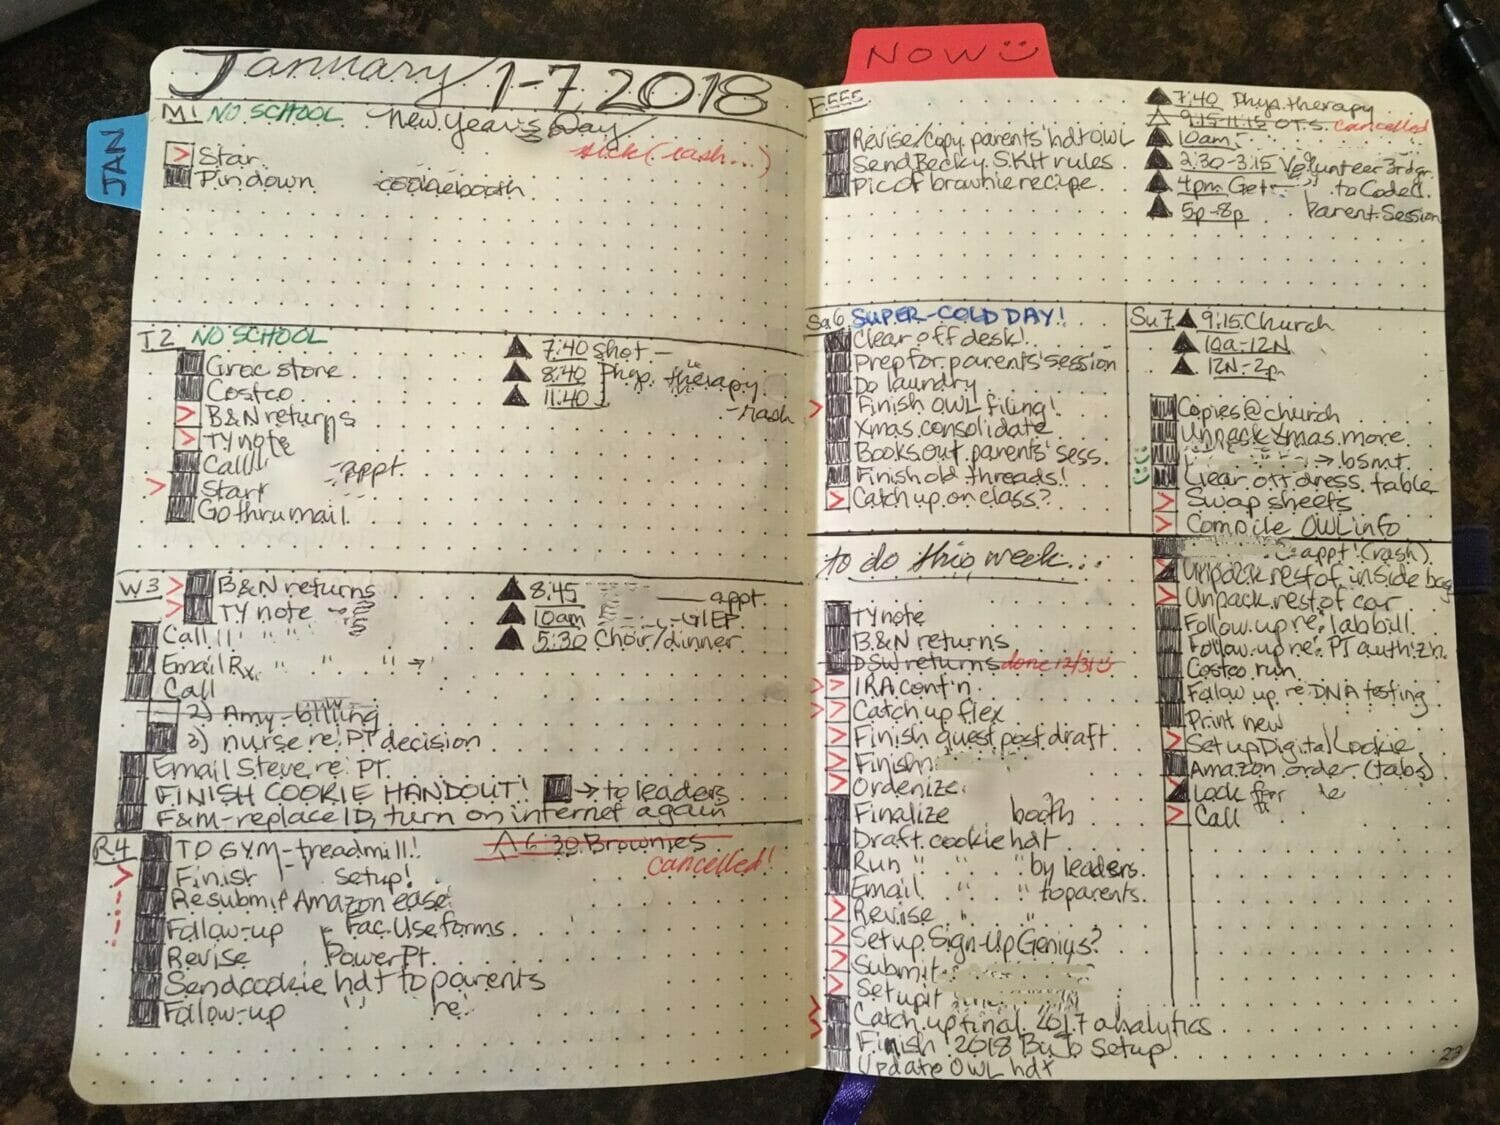 NOW
JAN
January 1-7, 2018
M1 NO SCHOOL New Year's Day
sick (rash...)
> Star
Pin down cookie booth
T2 NO SCHOOL
Groc store
Costco
> B&N returns
> TY note
Call appt.
> Start
Go thru mail
7:40 Shot -
8:40 Phys. therapy
11:40
- rash
W3 > B&N returns
> TY note →
Call " "
Email Rx " " " →
Call
2) Amy - billing
3) nurse re: PT decision
Email Steve re: PT
FINISH COOKIE HANDOUT! → to leaders
F&M - replace ID, turn on internet again
8:45 appt.
10am
5:30 Choir/dinner
R4 TO GYM - treadmill!
> Finish setup!
Resubmit Amazon ease
Follow-up Fac. Use forms
Revise PowerPt.
Send cookie hdt to parents
Follow-up " re:
6:30 Brownies
cancelled!
Revise/Copy parents' hdt OWL
Send Becky SKH rules
Pic of brownie recipe
7:40 Phys. therapy
9:15-11:15 O.T.S. cancelled
10am
2:30-3:15 Volunteer 3rd gr.
4pm Get to Codell
5p-8p Parent Session
Sa6 SUPER-COLD DAY!
Clear off desk!
Prep for parents' session
Do laundry
> Finish OWL filing!
Xmas consolidate
Books out parents' sess.
Finish old threads!
> Catch up on class?
Su7 9:15 Church
10a-12N
12N-2p
Copies @ church
Unpack Xmas more
→ bsmt.
Clear off dress. table
> Swap sheets
> Compile OWL info
to do this week...
TY note
B&N returns
DSW returns done 12/31
>> IRA cont'n
>> Catch up flex
> Finish guest post draft
> Finish
> Ordenize
Finalize booth
Draft cookie hdt
Run " " by leaders
Email " " to parents
> Revise " "
> Set up Sign-Up Genius?
> Submit
> Set up
> Catch up final 2017 analytics
> Finish 2018 BuJo Setup
Update OWL hdt
appt! (rash)
Unpack rest of inside bag
> Unpack rest of car
Follow up re: lab bill
Follow up re: PT authiz'n.
Costco run
Follow up re: DNA testing
Print new
> Set up Digital Cookie
Amazon order (tabs)
Look for
> Call
23